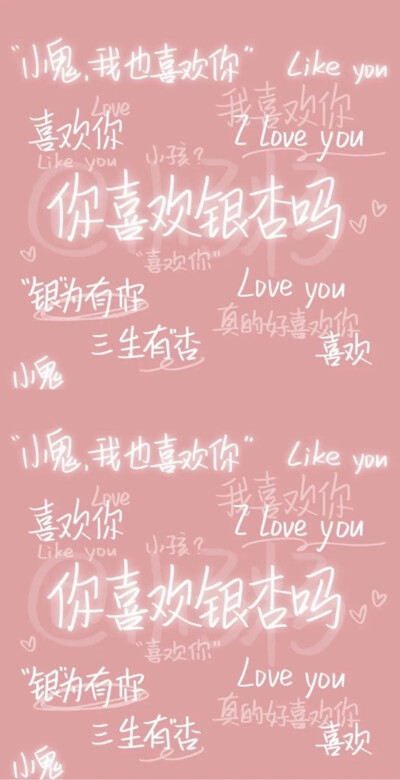 “小鬼,我也喜欢你” Like you
Love 我喜欢你
喜欢你 I Love you
Like you 小孩?
你喜欢银杏吗
“喜欢你”
“银”为有你 Love you
真的好喜欢你
三生有“杏” 喜欢
小鬼
“小鬼,我也喜欢你” Like you
Love 我喜欢你
喜欢你 I Love you
Like you 小孩?
你喜欢银杏吗
“喜欢你”
“银”为有你 Love you
真的好喜欢你
三生有“杏” 喜欢
小鬼